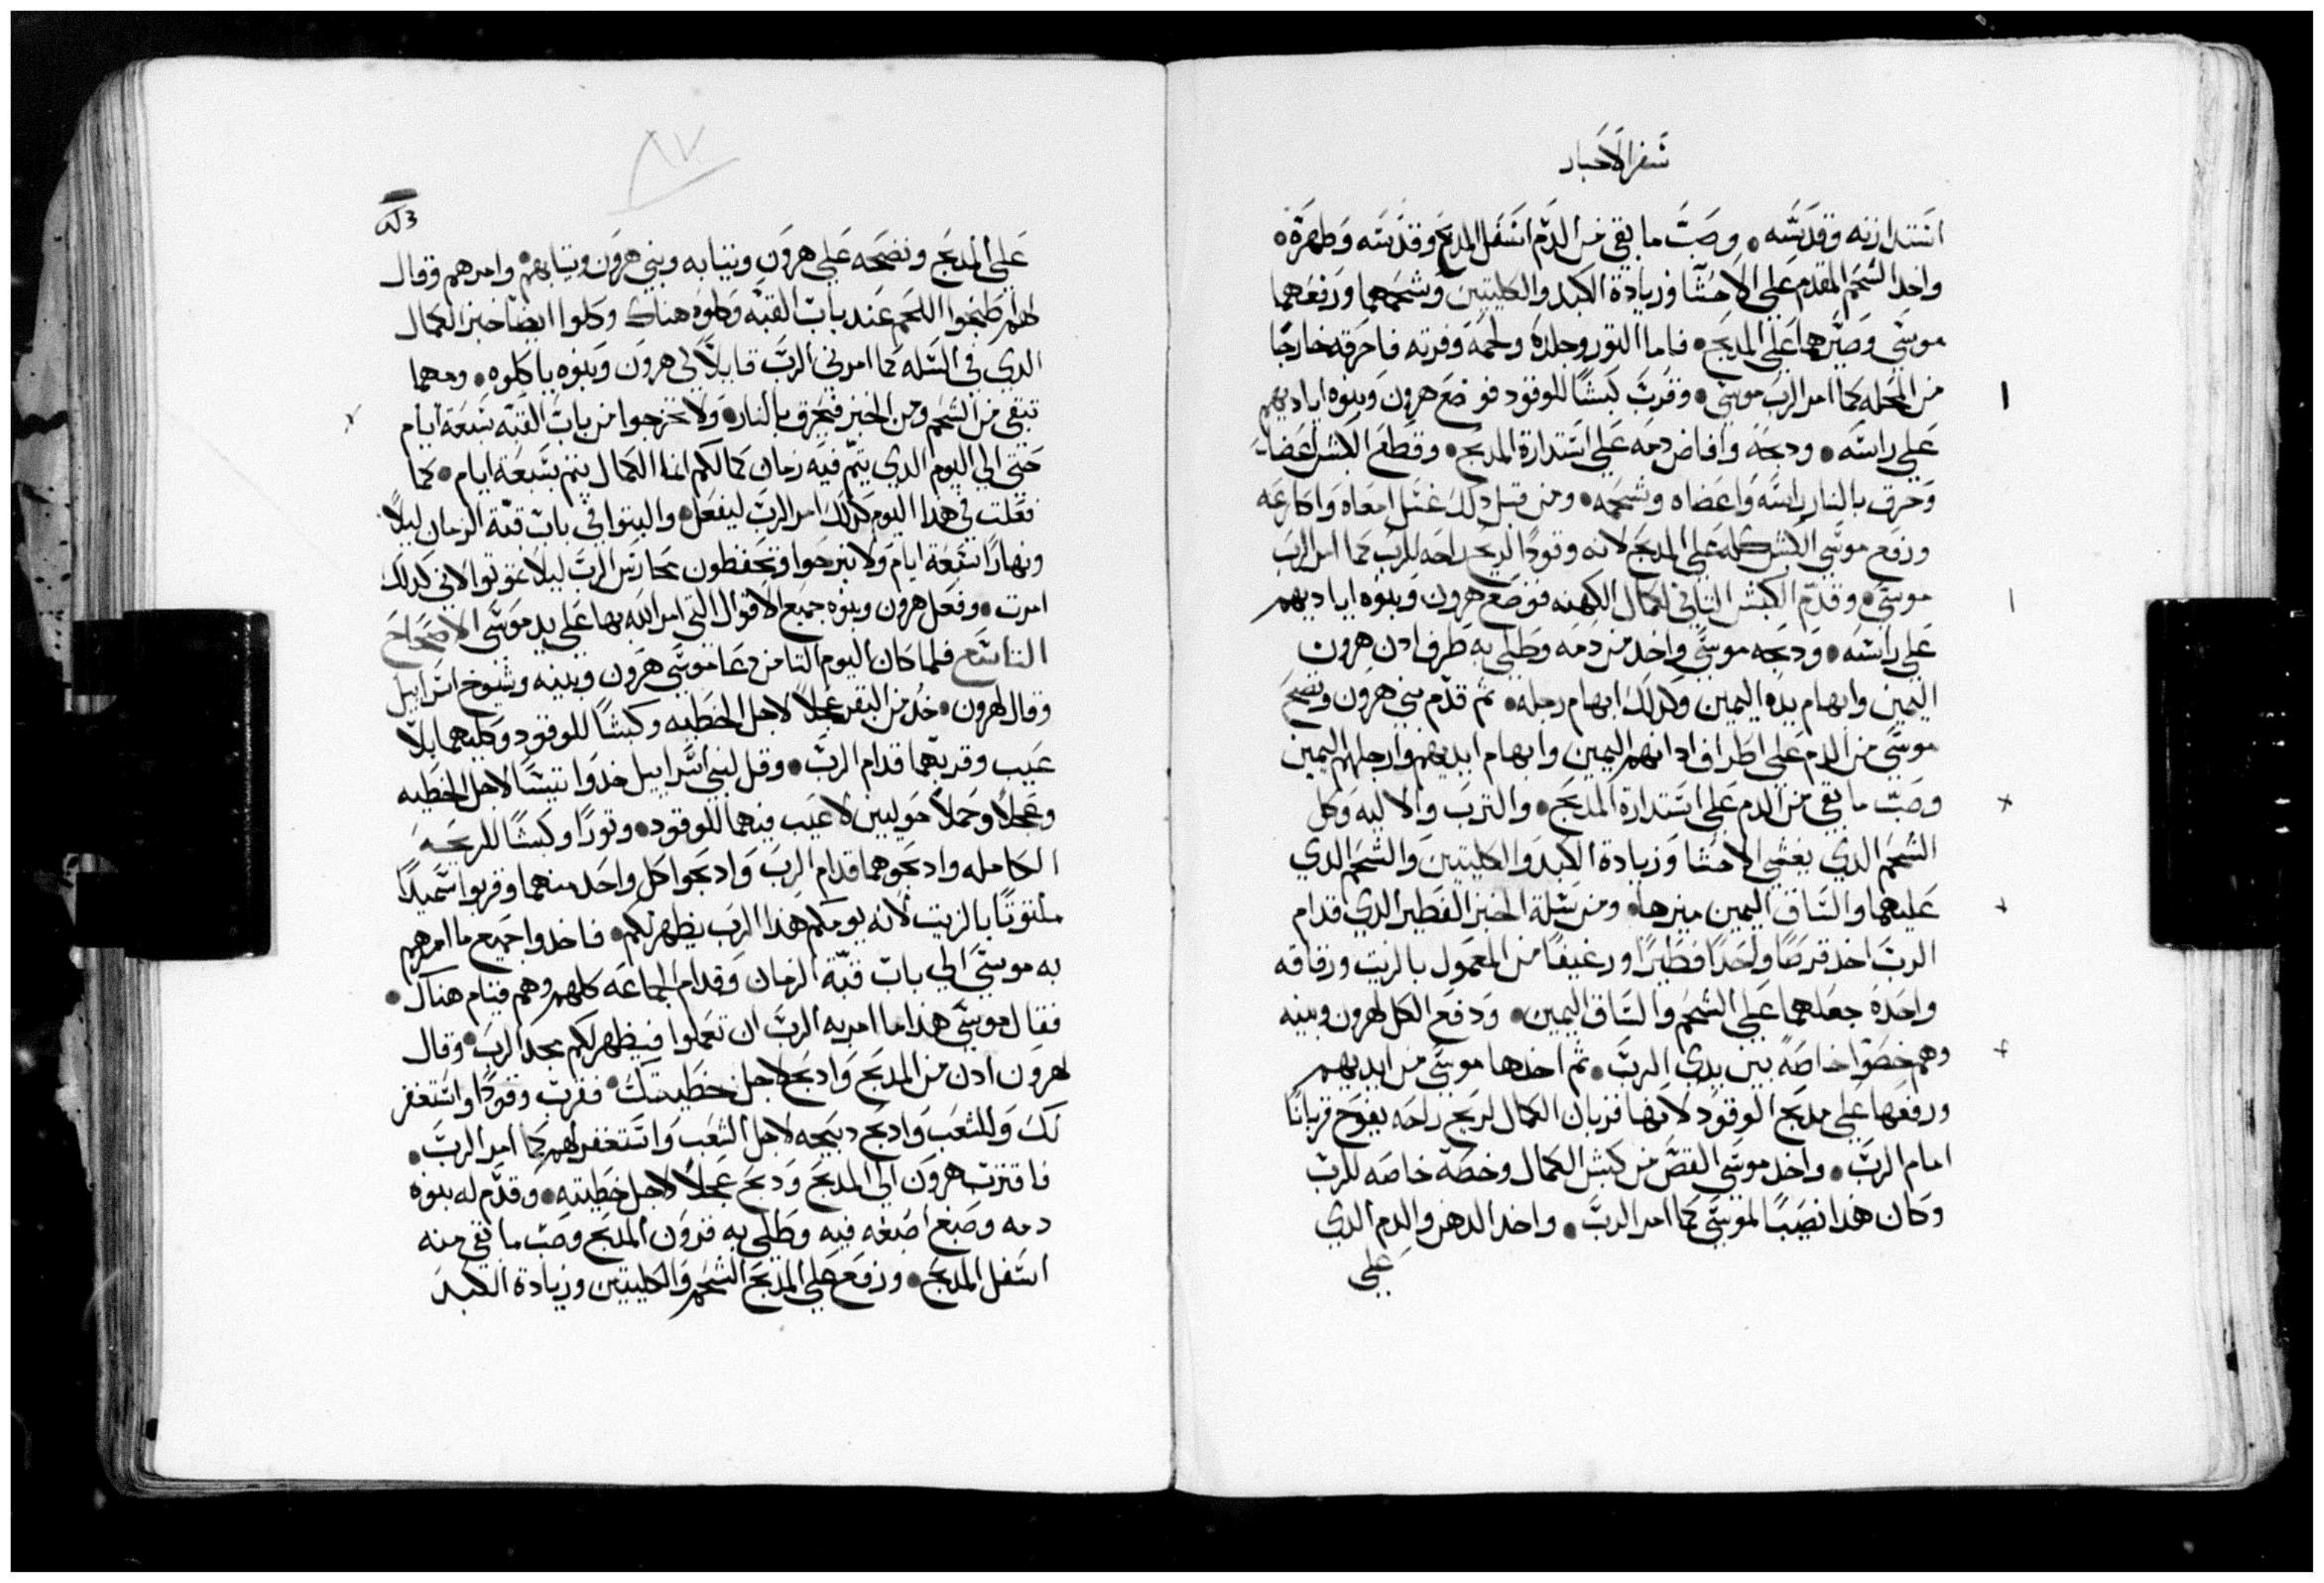 سفر الاحبار
استدارته وقدسه. وصب ما بقي من الدم اسفل المدبح وقدسه وطهره.
واخد الشحم المقدم علي الاحشا وزيادة الكبد والكليتين وشحمهما ورفعهما
موسي وصيرهما علي المدبح. فاما التور وجلده ولحمه وفرته فاحرقه خارجًا
من المحله كما امر الرب موسي. وقرب كبشًا للوقود فوضع هرون وبنوه اياديهم
علي راسه. ودبحه وافاض دمه علي استدارة المدبح. وقطع الكبش اعضا
وحرق بالنار راسه واعضاه وشحمه. ومن قبل دلك غسل امعاه واكارعه
ورفع موسي الكبش كله علي المدبح لانه وقودًا لريح راحه للرب كما امر الرب
موسي. وقدم الكبش التاني لكمال الكهنه فوضع هرون وبنوه اياديهم
علي راسه. ودبحه موسي واخد من دمه وطلي به طرف ادن هرون
اليمين وابهام يده اليمين وكدلك ابهام رجله. تم قدم بني هرون ونضح
موسي من الدم علي اطراف ادانهم اليمين وابهام ايديهم وارجلهم اليمين
وصب ما بقي من الدم علي استدارة المدبح. والترب والاليه وكل
الشحم الدي يغشي الاحشا وزيادة الكبد والكليتين والشحم الدي
عليهما والساق اليمين ميزها. ومن سلة الخبز الفطير الدي قدام
الرب اخد قرصًا واحدًا فطيرًا ورغيفًا من المعمول بالزيت ورقاقه
واحده جعلهما علي الشحم والساق اليمين. ودفع الكل لهرون وبنيه
وهم خصوا خاصه بين يدي الرب. تم اخدها موسي من ايديهم
ورفعها علي مدبح الوقود لانها قربان الكمال لريح راحه يفوح قربانًا
امام الرب. واخد موسي القص من كبش الكمال وخصه خاصه للرب
وكان هدا نصيبًا لموسي كما امر الرب. واخد الدهن والدم الدي
علي
علي المدبح ونضحه علي هرون وتيابه وبني هرون وتيابهم. وامرهم وقال
لهم اطبخوا اللحم عند باب القبه وكلوه هناك وكلوا ايضا خبز الكمال
الدي في السله كما امرني الرب قايلًا ان هرون وبنوه ياكلوه. ومهما
تبقي من الشحم ومن الخبز فيحرق بالنار. ولا تخرجوا من باب القبه سبعة ايام
حتي الي اليوم الدي يتم فيه زمان كمالكم انما الكمال يتم بسبعة ايام. كما
فعلت في هدا اليوم كدلك امر الرب ليفعل. والبتوا في باب قبة الزمان ليلًا
ونهارًا سبعة ايام ولا تبرحوا وتحفظون محارس الرب ليلا تموتوا لاني كدلك
امرت. وفعل هرون وبنوه جميع الاقوال التي امر الله بها علي يد موسي الاصحاح
التاسع فلما كان اليوم التامن دعا موسي هرون وبنيه وشيوخ اسراييل
وقال لهرون. خد من البقر عجلًا لاجل الخطيه وكبشًا للوقود وكليهما بلا
عيب وقربهما قدام الرب. وقل لبني اسراييل خدوا تيسًا لاجل الخطيه
وعجلًا وحملًا حوليين لا عيب فيهما للوقود. وتورًا وكبشًا للدبيحه
الكامله وادبحوهما قدام الرب وادبحوا كل واحد منهما وقربوا سميدًا
ملتوتًا بالزيت لانه يومكم هدا الرب يظهر لكم. فاخدوا جميع ما امرهم
به موسي الي باب قبة الزمان وقدام الجماعه كلهم وهم قيام هناك.
فقال موسي هدا ما امر به الرب ان تعملوا فيظهر لكم مجد الرب. وقال
لهرون ادن من المدبح وادبح لاجل خطيتك. فقرب وقودًا واستغفر
لك وللشعب وادبح دبيحه لاجل الشعب واستغفر لهم كما امر الرب.
فاقترب هرون الي المدبح ودبح عجلًا لاجل خطيته. وقدم له بنوه
دمه وصبغ اصبعه فيه وطلي به قرون المدبح وصب ما بقي منه
اسفل المدبح. ورفع علي المدبح الشحم والكليتين وزيادة الكبد